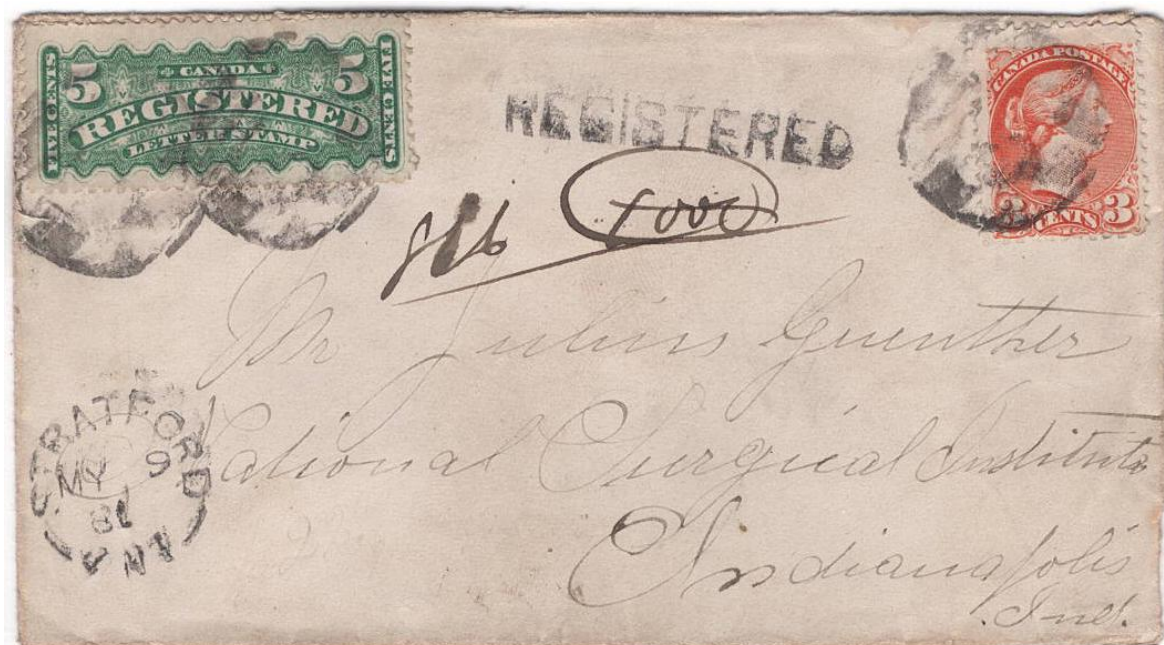 5 CANADA 5
FIVE CENTS REGISTERED FIVE CENTS
LETTER STAMP
REGISTERED
CANADA POSTAGE
3 CENTS 3
Mr Julius Guenther
National Surgical Institute
Indianapolis
Ind.
STRATFORD
MY 9
81